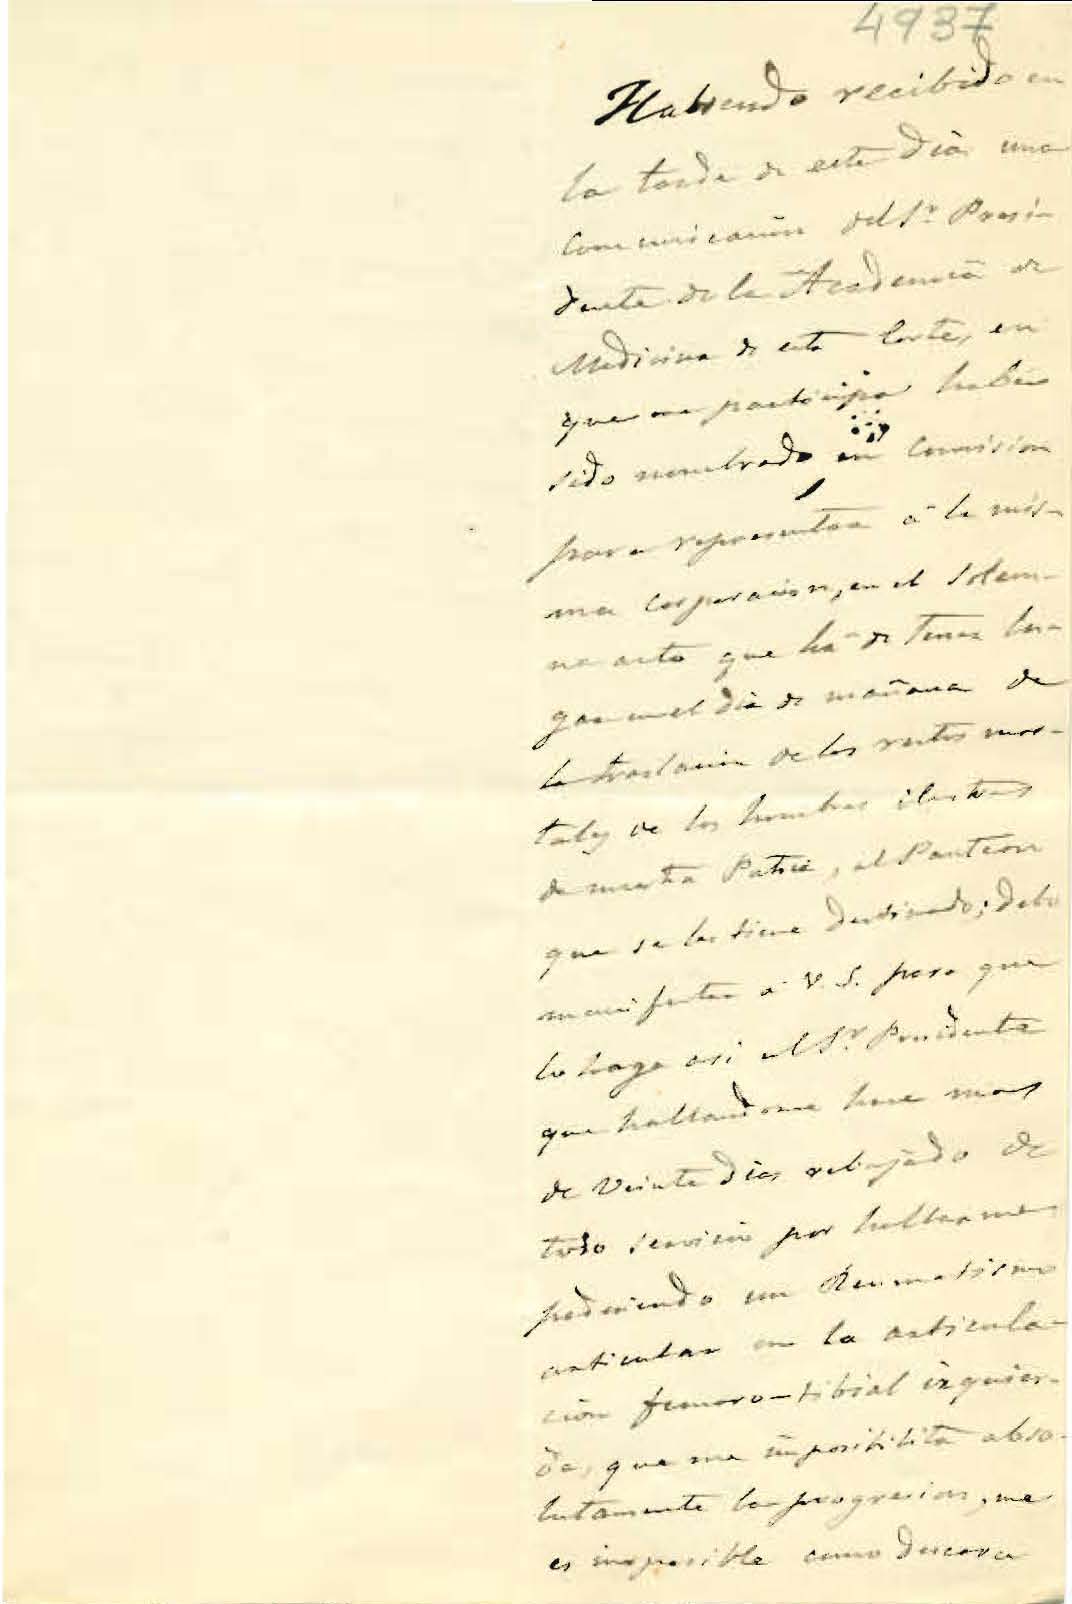 4937
Habiendo recibido en
la tarde de este dia una
comunicación del Sr. Presi-
dente de la Academia de
Medicina de esta Corte, en
que me participa haber
sido nombrado en Comision
para representar á la mis-
ma corporacion, en el solem-
ne acto que há de tener lu-
gar en el dia de mañana de
la traslacion de los restos mor-
tales de los hombres ilustres
de nuestra Patria, al Panteon
que se les tiene destinado; debo
manifestar á V. S. para que
lo haga asi al Sr. Presidente
que hallandome hace mas
de veinte dias rebajado de
todo servicio por hallarme
padeciendo un Reumatismo
articular en la articula-
cion femoro-tibial izquier-
da, que me imposibilita abso-
lutamente la progresion, me
es imposible como deseara